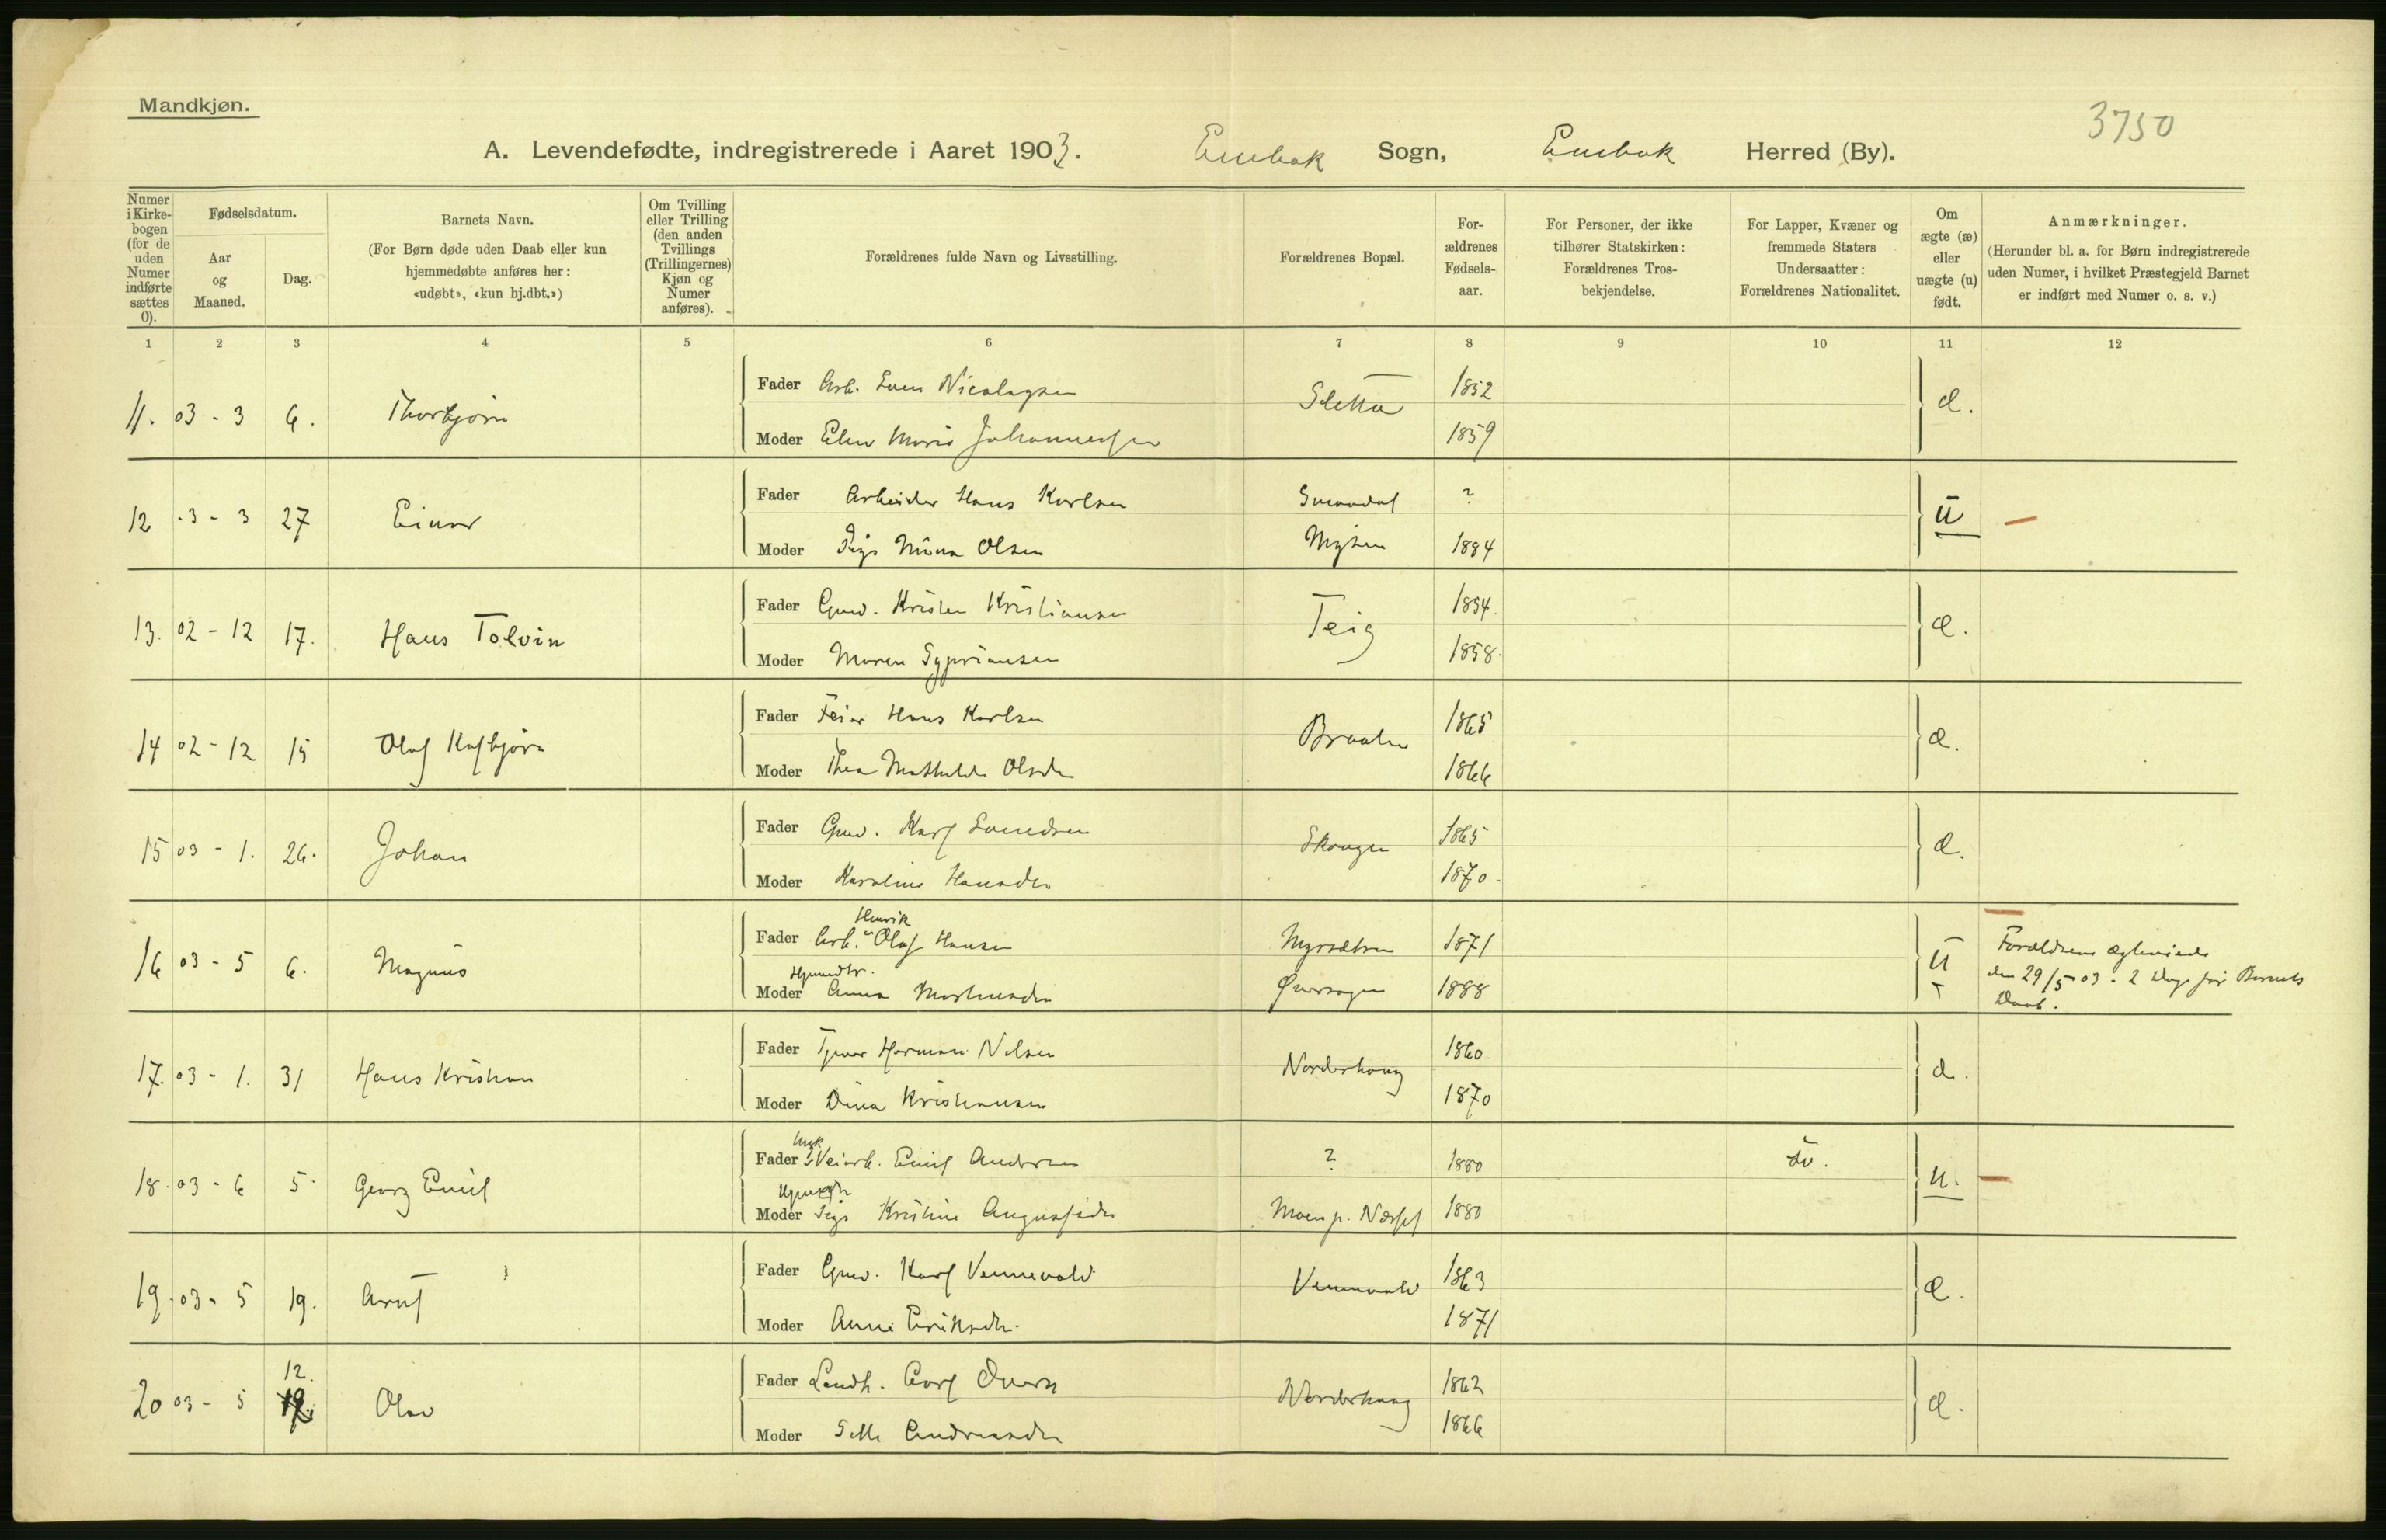 Mandkjøn.
3750
A. Levendefødte, indregistrerede i Aaret 1903. Enebak Sogn, Enebak Herred (By).
Numer i Kirkebogen (for de uden Numer indførte sættes 0).
Fødselsdatum.
Aar og Maaned.
Dag.
Barnets Navn.
(For Børn døde uden Daab eller kun hjemmedøbte anføres her: «udøbt», «kun hj.dbt.»)
Om Tvilling eller Trilling (den anden Tvillings (Trillingernes) Kjøn og Numer anføres).
Forældrenes fulde Navn og Livsstilling.
Forældrenes Bopæl.
Forældrenes Fødselsaar.
For Personer, der ikke tilhører Statskirken: Forældrenes Trosbekjendelse.
For Lapper, Kvæner og fremmede Staters Undersaatter: Forældrenes Nationalitet.
Om ægte (æ) eller uægte (u) født.
Anmærkninger.
(Herunder bl. a. for Børn indregistrerede uden Numer, i hvilket Præstegjeld Barnet er indført med Numer o. s. v.)
1 2 3 4 5 6 7 8 9 10 11 12
11. 03 - 3 6. Thorbjørn Fader Arb. Sven Nicolaysen Sletta 1852 æ.
Moder Elen Marie Johannessen 1859
12 -3 - 3 27 Einar Fader Arbeider Hans Karlsen Smaadal ? u
Moder Pige Mina Olsen Mysen 1884
13. 02 - 12 17. Hans Tolvin Fader Gmd. Kristen Kristiansen Teig 1854. æ.
Moder Maren Sypriansen 1858.
14 02 - 12 15 Olaf Kasbjørn Fader Feier Hans Karlsen Braaten 1865 æ.
Moder Thea Mathilde Olsdr 1866
15 03 - 1. 26. Johan Fader Gmd. Karl Svendsen Skaugen 1865 æ.
Moder Karoline Hansdr 1870.
16 03 - 5 6. Magnus Fader Arb. Henrik Olaf Hansen Myrsætren 1871 u
Moder Hjmdtr. Anna Mathisdr 1888
Forældrene ægteviede
den 29/5 03 - 2 Dage før Barnets
Daab.
17. 03 - 1. 31 Hans Kristian Fader Herman Nilsen Norderhaug 1860 æ.
Moder Dina Kristiansen 1870
18. 03 - 6 5. Georg Emil Fader Ungk Veiarb. Emil Andersen ? 1880 sv. u.
Moder Pige Kristine Augustsdr Moen p. 1880
19. 03 - 5 19. Arnt Fader Gmd. Karl Vennevold Vennevold 1863 æ.
Moder Anne Eriksdr. 1871
20 03 - 5 12. Olav Fader Landh. Carl Norderhaug 1862 æ.
Moder Andreasdr 1866